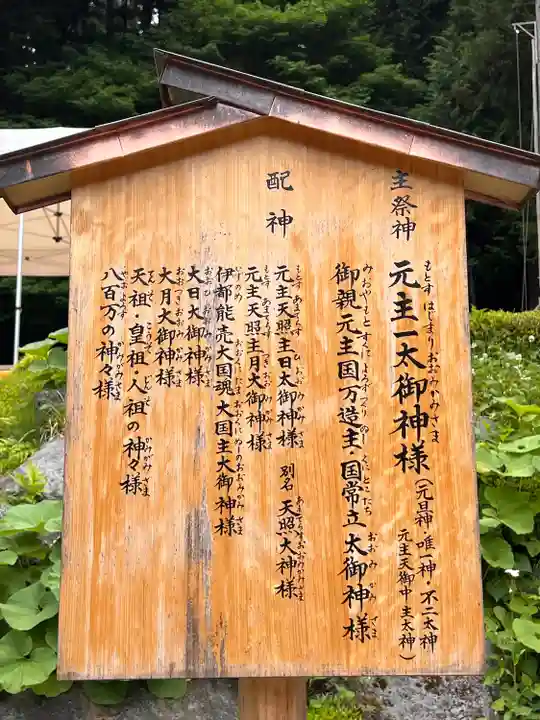 主祭神 元主一太御神様(元旦神・唯一神・不二太神
元主天御中主太神)
御親元主国万造主・国常立太御神様
配神
元主天照主日太御神様 別名 天照大神様
元主天照主月大御神様
伊都能売大国魂大国主大御神様
大日大御神様
大月大御神様
天祖・皇祖・人祖の神々様
八百万の神々様